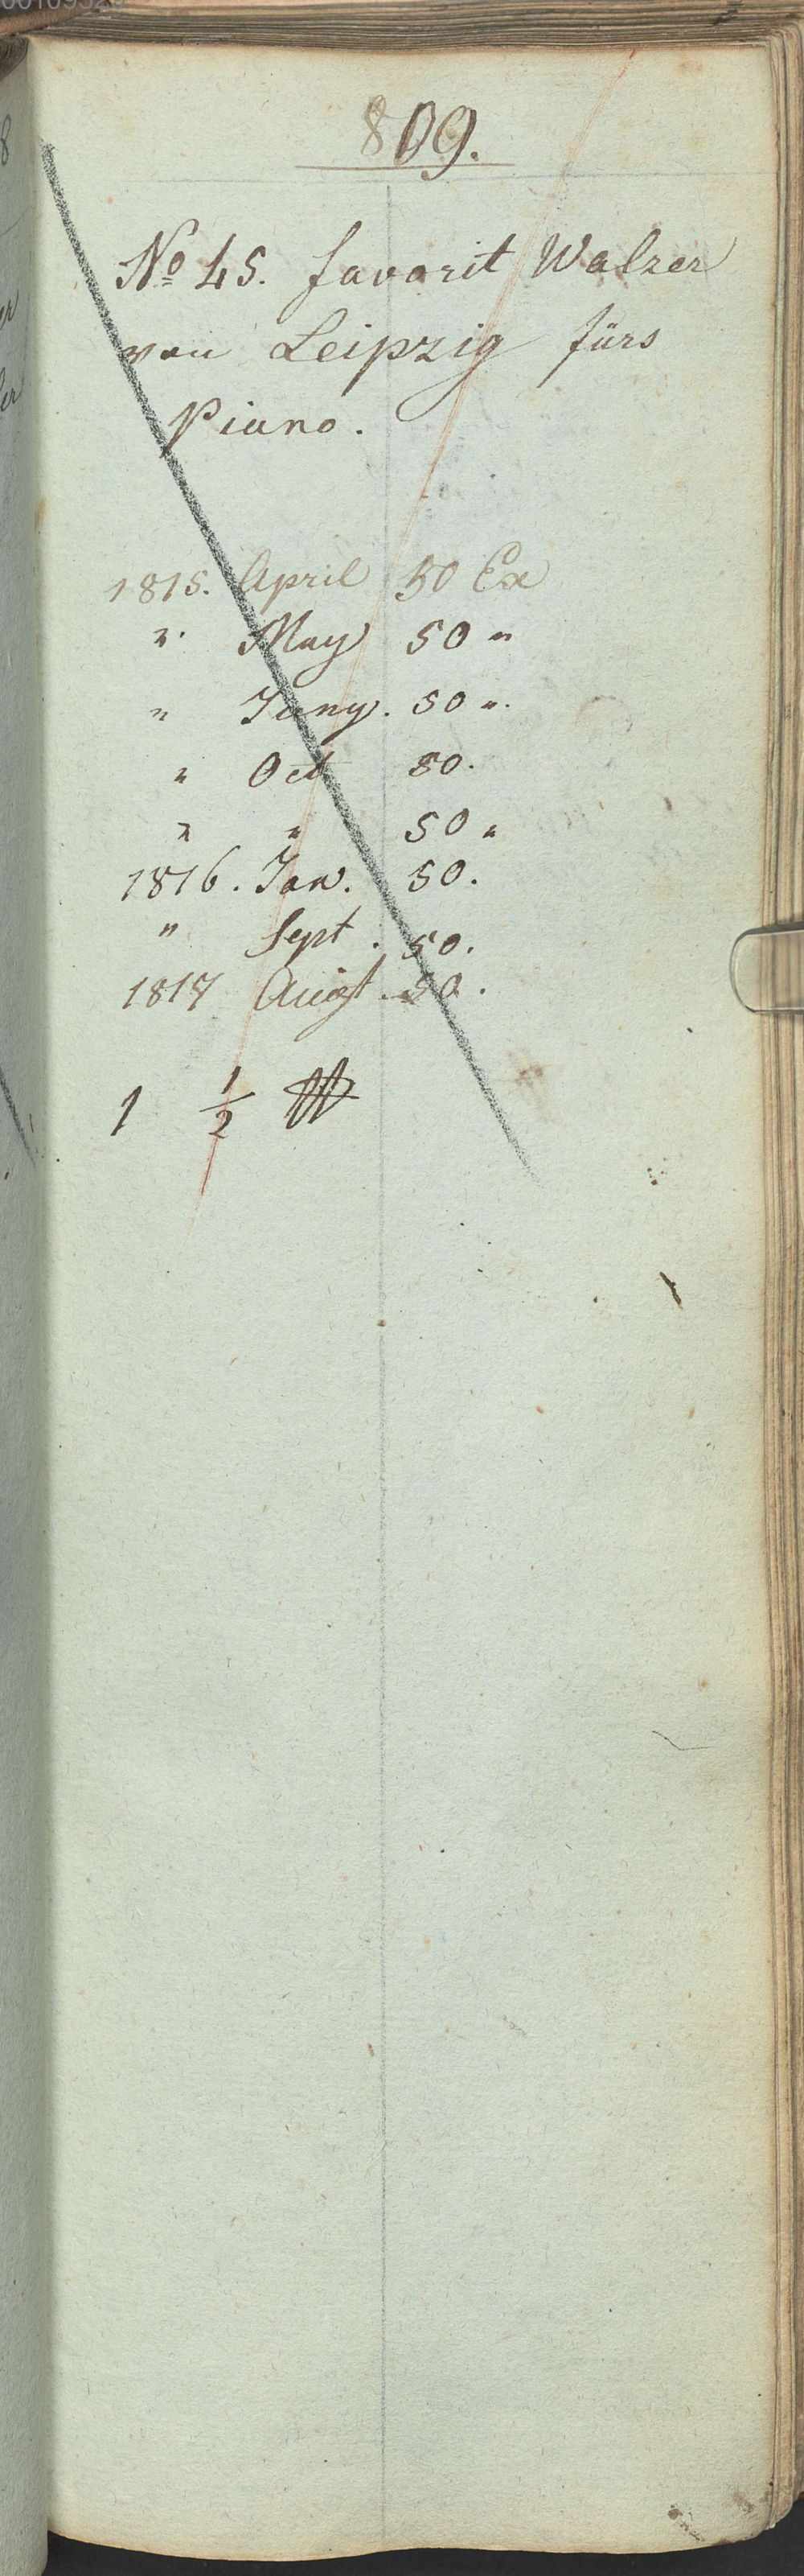 809.
No 45. favorit Walzer
von Leipzig fürs
Piano.
1815. April 50 Ex
" May 50 "
" Juny. 50 ".
" Oct 50.
" " 50 "
1816. Jan. 50.
" Sept. 50.
1817 Augst. 50.
1 1/2